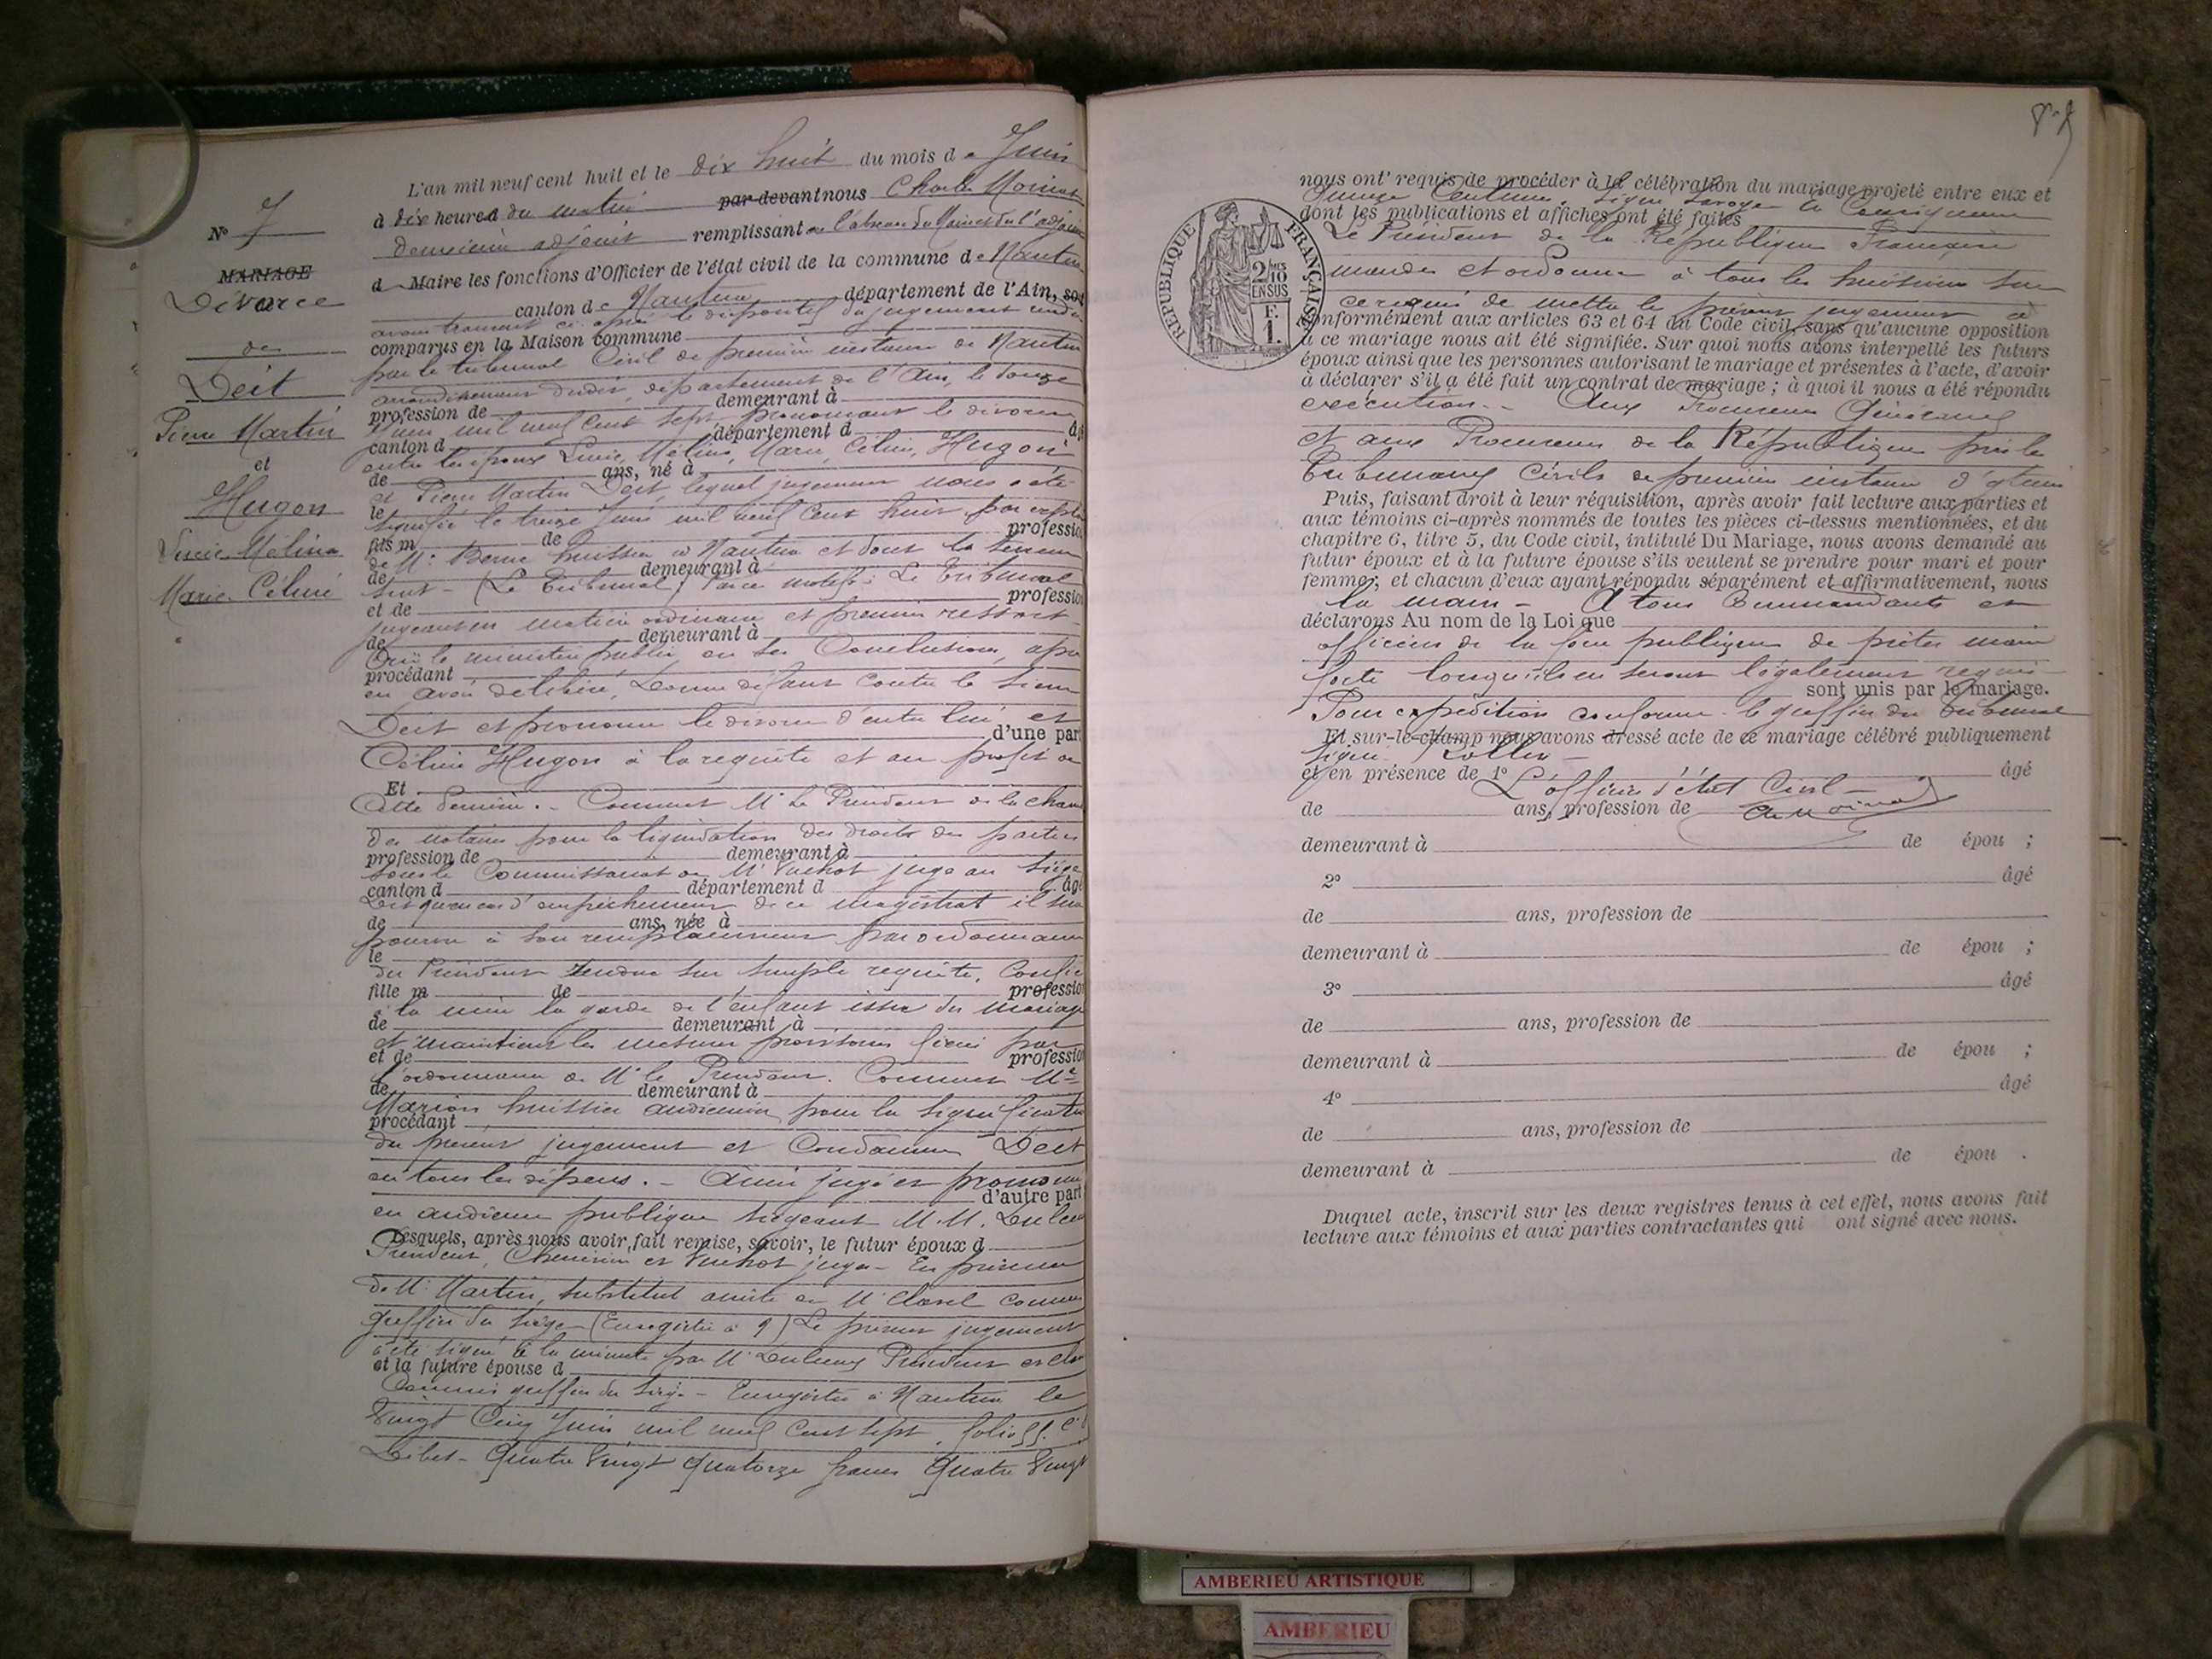 N° 7
MARIAGE
Divorce
de
Deit
Pierre Martin
et
Hugon
Lucie Mélina
Marie Céline
L'an mil neuf cent huit et le dix huit du mois de Juin
à dix heures du matin par-devant nous Charles Moinat
deuxième adjoint remplissant en l'absence du Maire et de l'adjoint
d Maire les fonctions d'Officier de l'état civil de la commune de Nantua
canton de Nantua département de l'Ain, sont
avons transcrit ci-après le dispositif du jugement rendu
comparus en la Maison commune
par le tribunal Civil de première instance de Nantua
arrondissement dudit, département de l'Ain, le douze
profession de demeurant à
Juin mil neuf cent sept, prononçant le divorce
canton d département d âgé
entre les époux Lucie, Mélina, Marie, Céline, Hugon
de ans, né à
et Pierre Martin Deit, lequel jugement nous a été
le
signifié le treize Juin mil neuf cent huit par exploit
fils m de profession
de Me Berne huissier à Nantua et dont la teneur
de demeurant à
suit - (Le Tribunal) Par ces motifs : Le Tribunal
et de profession
jugeant en matière ordinaire et premier ressort
de demeurant à
Ouï le ministère public en ses Conclusions, après
procédant
en avoir délibéré, Donne défaut contre le sieur
Deit et prononce le divorce d'entre lui et
d'une part
Céline Hugon à la requête et au profit de
Et
Cette dernière. - Commet Mr Le Président de la chambre
des notaires pour la liquidation des droits des parties
profession de demeurant à
sous le Commissariat de Mr Vuchot juge au siège
canton d département d âgé
Dit qu'en cas d'empêchement de ce magistrat il sera
de ans, née à
pourvu à son remplacement par ordonnance
le
du Président rendue sur simple requête, Confie
fille m de profession
à la mère la garde de l'enfant issu du mariage
de demeurant à
et maintient les mesures provisoires fixées par
et de profession
l'ordonnance de Mr le Président. Commet Me
de demeurant à
Marion huissier audiencier pour la signification
procédant
du présent jugement et Condamne Deit
en tous les dépens. - Ainsi jugé et prononcé
d'autre part
en audience publique siégeant M.M.
Lesquels, après nous avoir fait remise, savoir, le futur époux d
Président, et Vuchot juges - En présence
de Mr Martin, substitut assisté de Mr Clavel commis
greffier du siège - (Enregistré à 9) Le présent jugement
a été signé à la minute par Mr Président et
et la future épouse d
Commis greffier du siège - Enregistré à Nantua le
Vingt Cinq Juin mil neuf Cent sept, folio
Débet - Quatre Vingt quatorze francs Quatre Vingt
nous ont requis de procéder à la célébration du mariage projeté entre eux et
Quinze Centimes. Signé
dont les publications et affiches ont été faites
Le Président de la République Française
mande et ordonne à tous les huissiers sur
ce requis de mettre le présent jugement à
conformément aux articles 63 et 64 du Code civil, sans qu'aucune opposition
à ce mariage nous ait été signifiée. Sur quoi nous avons interpellé les futurs
époux ainsi que les personnes autorisant le mariage et présentes à l'acte, d'avoir
à déclarer s'il a été fait un contrat de mariage ; à quoi il nous a été répondu
exécution. - Aux Procureurs Généraux
et aux Procureurs de la République près le
Tribunaux Civils de première instance d'y tenir
Puis, faisant droit à leur réquisition, après avoir fait lecture aux parties et
aux témoins ci-après nommés de toutes les pièces ci-dessus mentionnées, et du
chapitre 6, titre 5, du Code civil, intitulé Du Mariage, nous avons demandé au
futur époux et à la future épouse s'ils veulent se prendre pour mari et pour
femme, et chacun d'eux ayant répondu séparément et affirmativement, nous
la main - A tous Commandants et
déclarons Au nom de la Loi que
officiers de la force publique de prêter main
forte lorsqu'ils en seront légalement requis
sont unis par le mariage.
Pour expédition conforme le greffier du Tribunal
Et sur-le-champ nous avons dressé acte de ce mariage célébré publiquement
Signé
et en présence de 1° âgé
L'officier d'état Civil -
de ans, profession de
demeurant à de épou ;
2° âgé
de ans, profession de
demeurant à de épou ;
3° âgé
de ans, profession de
demeurant à de épou ;
4° âgé
de ans, profession de
demeurant à de épou .
Duquel acte, inscrit sur les deux registres tenus à cet effet, nous avons fait
lecture aux témoins et aux parties contractantes qui ont signé avec nous.
RÉPUBLIQUE FRANÇAISE
2 MES
10
EN SUS
F.
1.
AMBERIEU ARTISTIQUE
AMBERIEU